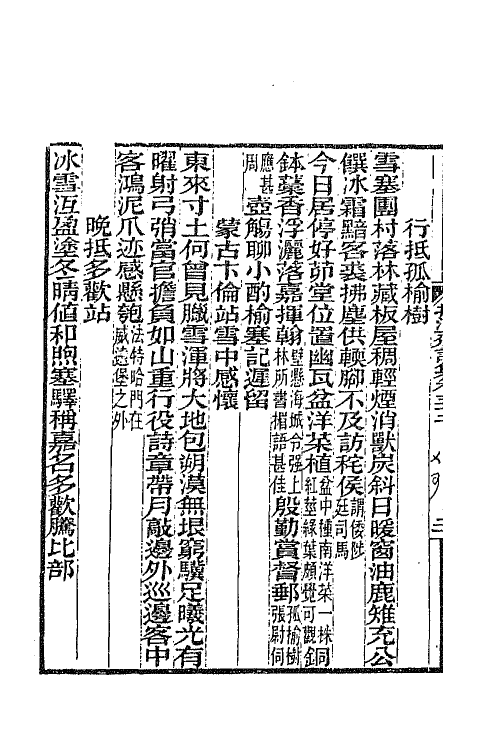 行抵孤榆樹
雪塞團村落林藏板屋稠輕煙消獸炭斜日暖窗油鹿雉充公
饌冰霜黯客裘拂塵供輭腳不及訪秺侯謂倭陟廷司馬
今日居停好茆堂位置幽瓦盆洋菜植盆中種南洋菜一株同紅莖綠葉頗覺可觀銅
鉢葉香浮灑落嘉揮翰壁懸海城令强上林所書楹語甚佳殷勤賞督郵孤榆樹張尉伺
應甚周壺觴聊小酌榆塞記遲留
蒙古卞倫站雪中感懷
東來寸土何曾見臘雪渾將大地包朔漠無垠窮驥足曦光有
曜射弓弰當官擔負如山重行役詩章帶月敲邊外巡邊客中
客鴻泥爪迹感懸匏法特哈門在威遠堡之外
晚抵多歡站
冰雪沍盈塗冬晴值和煦塞驛稱嘉名多歡騰比部